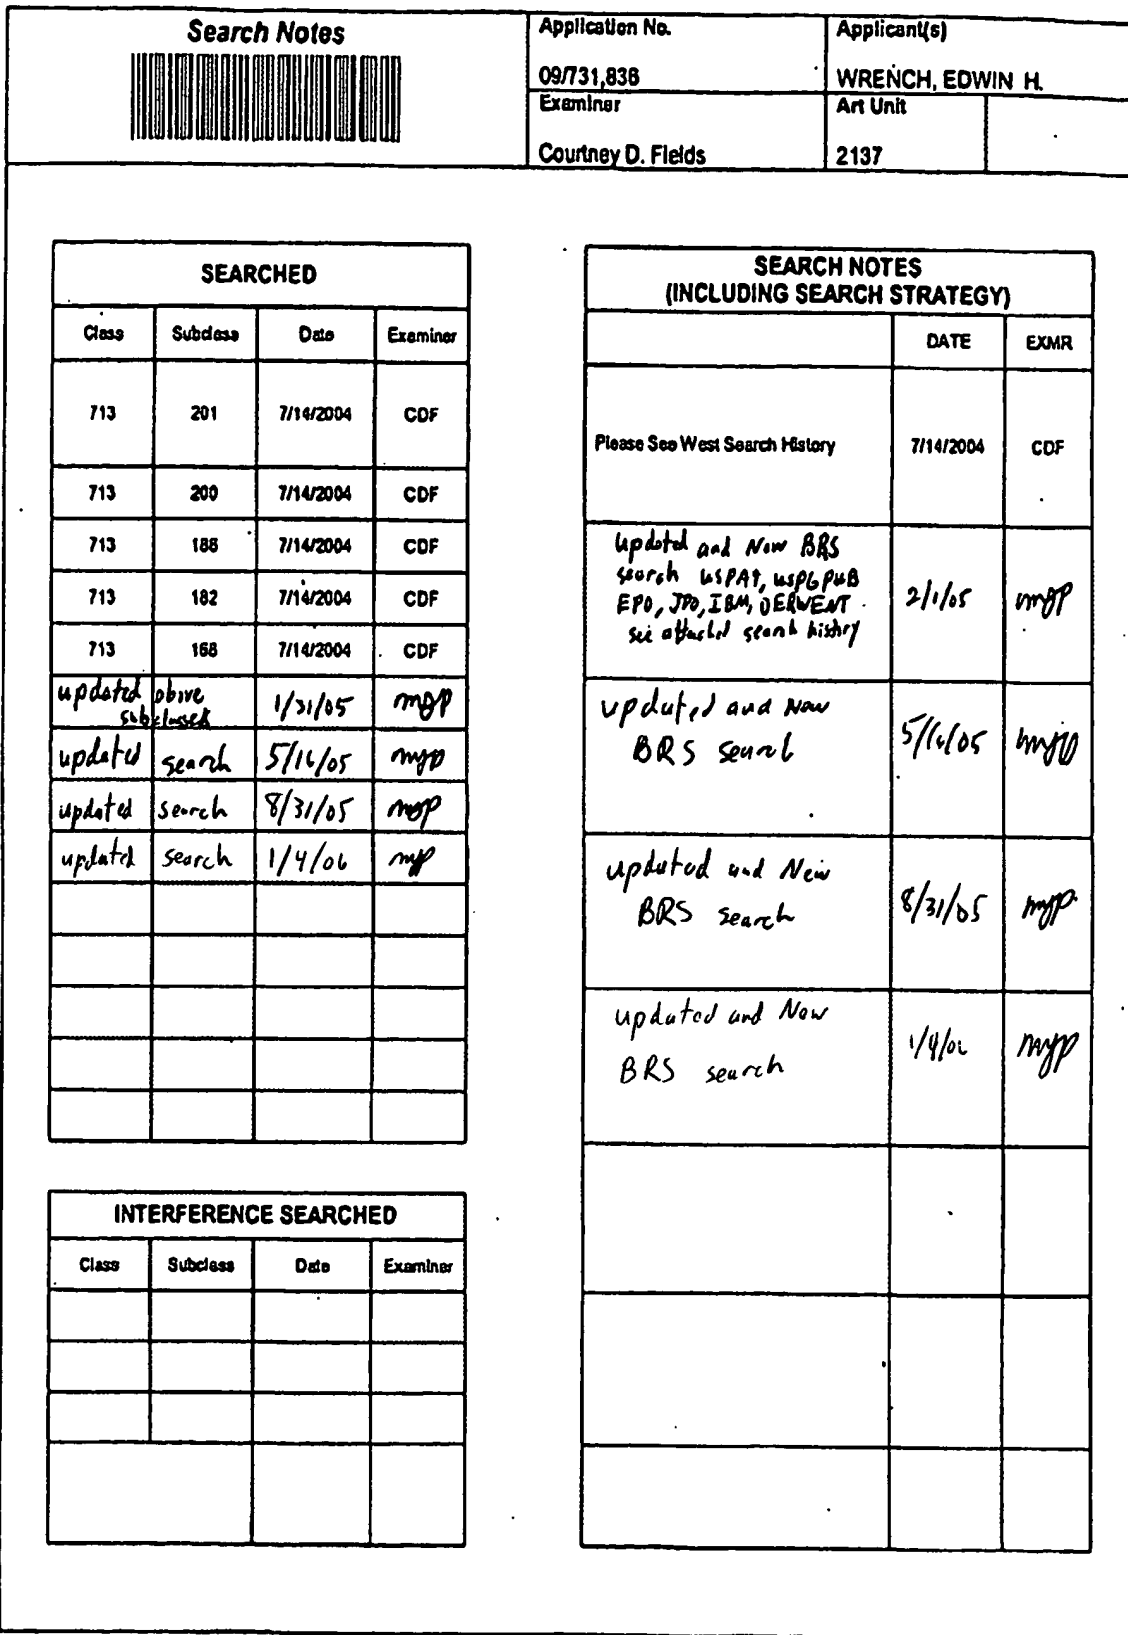 Search Notes
Application No.
09/731,836
Applicant(s)
WRENCH, EDWIN H.
Examiner
Courtney D. Fields
Art Unit
2137
SEARCHED
Class Subclass Date Examiner
713 201 7/14/2004 CDF
713 200 7/14/2004 CDF
713 186 7/14/2004 CDF
713 182 7/14/2004 CDF
713 168 7/14/2004 CDF
updated above
subclasses 1/31/05 mgp
updated search 5/16/05 mgp
updated search 8/31/05 mgp
updated search 1/4/06 mgp
INTERFERENCE SEARCHED
Class Subclass Date Examiner
SEARCH NOTES
(INCLUDING SEARCH STRATEGY)
DATE EXMR
Please See West Search History 7/14/2004 CDF
updated and New BRS
search USPAT, USPGPUB
EPO, JPO, IBM, DERWENT
see attached search history 2/1/05 mgp
updated and New
BRS search 5/16/05 mgp
updated and New
BRS search 8/31/05 mgp
updated and New
BRS search 1/4/06 mgp